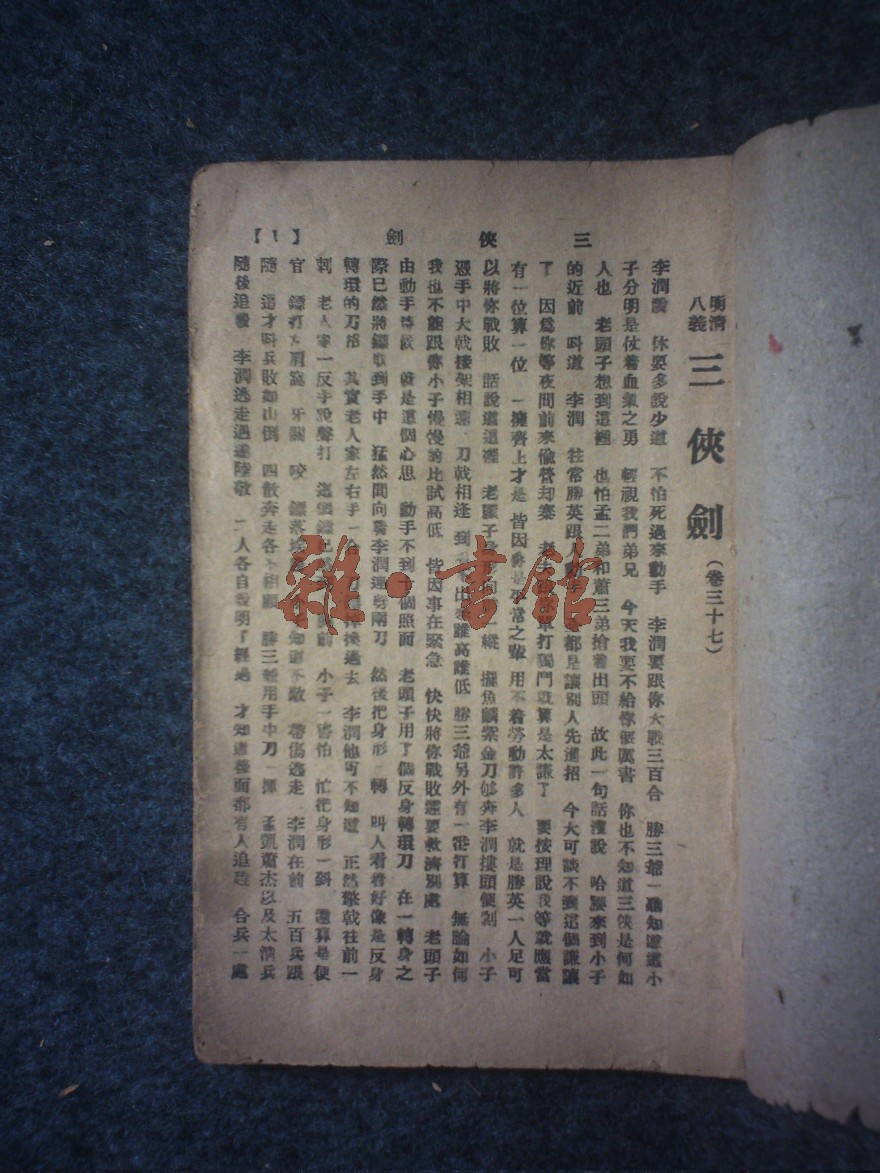 三俠劍
【1】
明清
八義
三俠劍
(卷三十七)
李潤說 休要多說少道 不怕死過來動手 李潤要跟你大戰三百合 勝三爺一聽知道這小
子分明是仗着血氣之勇 輕視我們弟兄 今天我要不給你個厲害 你也不知道三俠是何如
人也 老頭子想到這裡 也怕孟二弟和蕭三弟搶着出頭 故此一句話沒說 哈腰來到小子
的近前 叫道 李潤 往常勝英跟人動 都是讓別人先進招 今天可談不到這個謙讓
了 因爲你等夜間前來偷營却寨 老夫 打獨鬥就算是太謙了 要按理說我等就應當
有一位算一位 一擁齊上才是 皆因 是平常之輩 用不着勞動許多人 就是勝英一人足可
以將你戰敗 話說道這裡 老頭子 向 一縱 擺魚鱗紫金刀够奔李潤摟頭便剁 小子
憑手中大戟接架相還 刀戟相逢 到 出 誰高誰低 勝三爺另外有一番打算 無論如何
我也不能跟你小子慢慢的比試高低 皆因事在緊急 快快將你戰敗還要救濟別處 老頭子
由動手時候 就是這個心思 動手不到十個照面 老頭子用了個反身轉環刀 在一轉身之
際已然將鏢 到手中 猛然間向着李潤連剁兩刀 然後把身形一轉 叫人看着好像是反身
轉環的刀招 其實老人家左右手一合 刀 換過去 李潤他可不知道 正然擎戟往前一
刺 老人家一反手說聲打 這個鏢 前 小子一害怕 忙把身形一斜 還算是便
官 鏢打在肩窩 牙關一咬 鏢落 知道不敵 帶傷逃走 李潤在前 五百兵跟
隨 這才叫兵敗如山倒 四散奔走各不相顧 勝三爺用手中刀一揮 孟凱蕭杰以及太清兵
隨後追殺 李潤逃走過遇陸敬 二人各自說明了經過 才知道後面都有人追趕 合兵一處
雜·書館